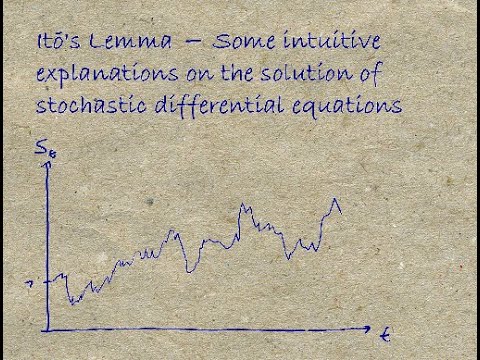 Itō's Lemma – Some intuitive
explanations on the solution of
stochastic differential equations
Sₜ
t